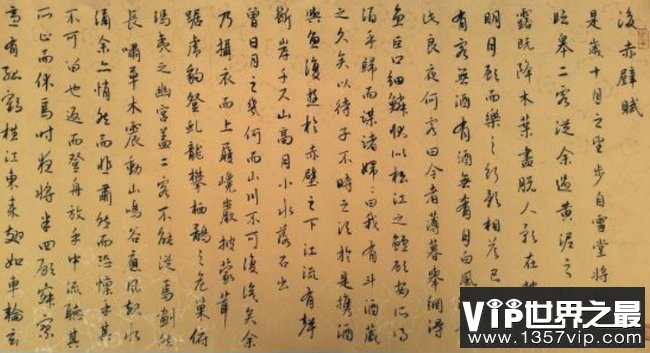 後赤壁賦
是歲十月之望步自雪堂將
臨皋二客從余過黃泥之
露既降木葉盡脫人影在
明月顧而樂之行歌相答已
有客無酒有酒無肴月白風
此良夜何客曰今者薄暮舉網得
魚巨口細鱗狀似松江之鱸顧安所得
酒乎歸而謀諸婦婦曰我有斗酒藏
之久矣以待子不時之須於是攜酒
與魚復遊於赤壁之下江流有聲
斷岸千尺山高月小水落石出
曾日月之幾何而山川不可復識矣余
乃攝衣而上履巉巖披蒙茸
踞虎豹登虬龍攀栖鶻之危巢俯
馮夷之幽宮蓋二客不能從焉劃然
長嘯草木震動山鳴谷應風起水
涌余亦悄然而悲肅然而恐慄乎其
不可留也返而登舟放乎中流聽其
所止而休焉時夜將半四顧寂寥
適有孤鶴橫江東來翅如車輪玄
VIP世界之最
www.1357vip.com